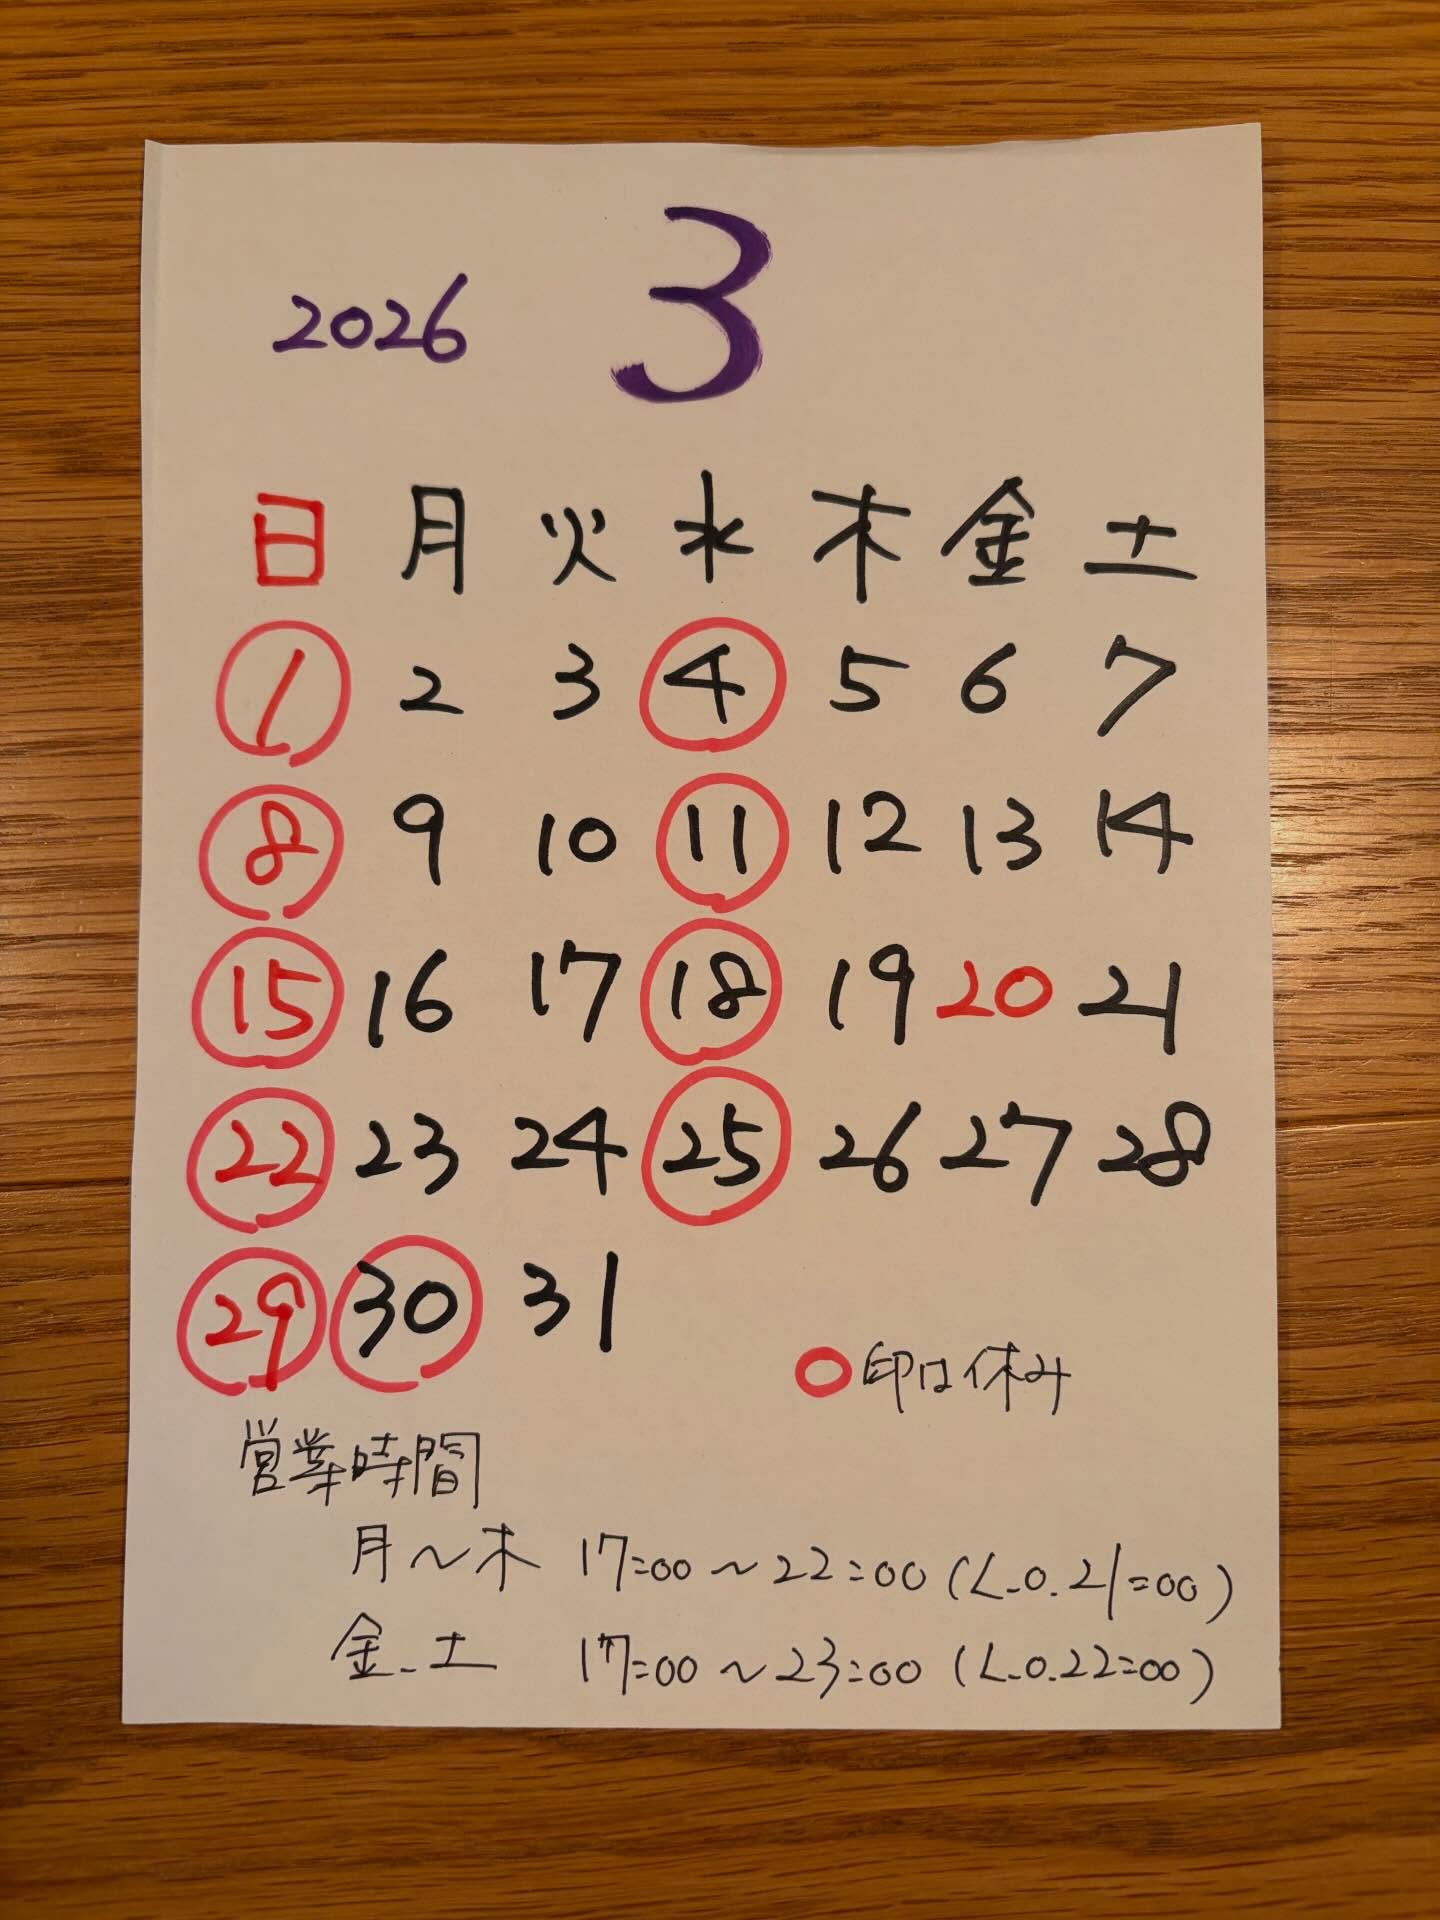 2026 3
日 月 火 水 木 金 土
1 2 3 4 5 6 7
8 9 10 11 12 13 14
15 16 17 18 19 20 21
22 23 24 25 26 27 28
29 30 31
○印は休み
営業時間
月〜木 17:00〜22:00(L.O.21:00)
金.土 17:00〜23:00(L.O.22:00)